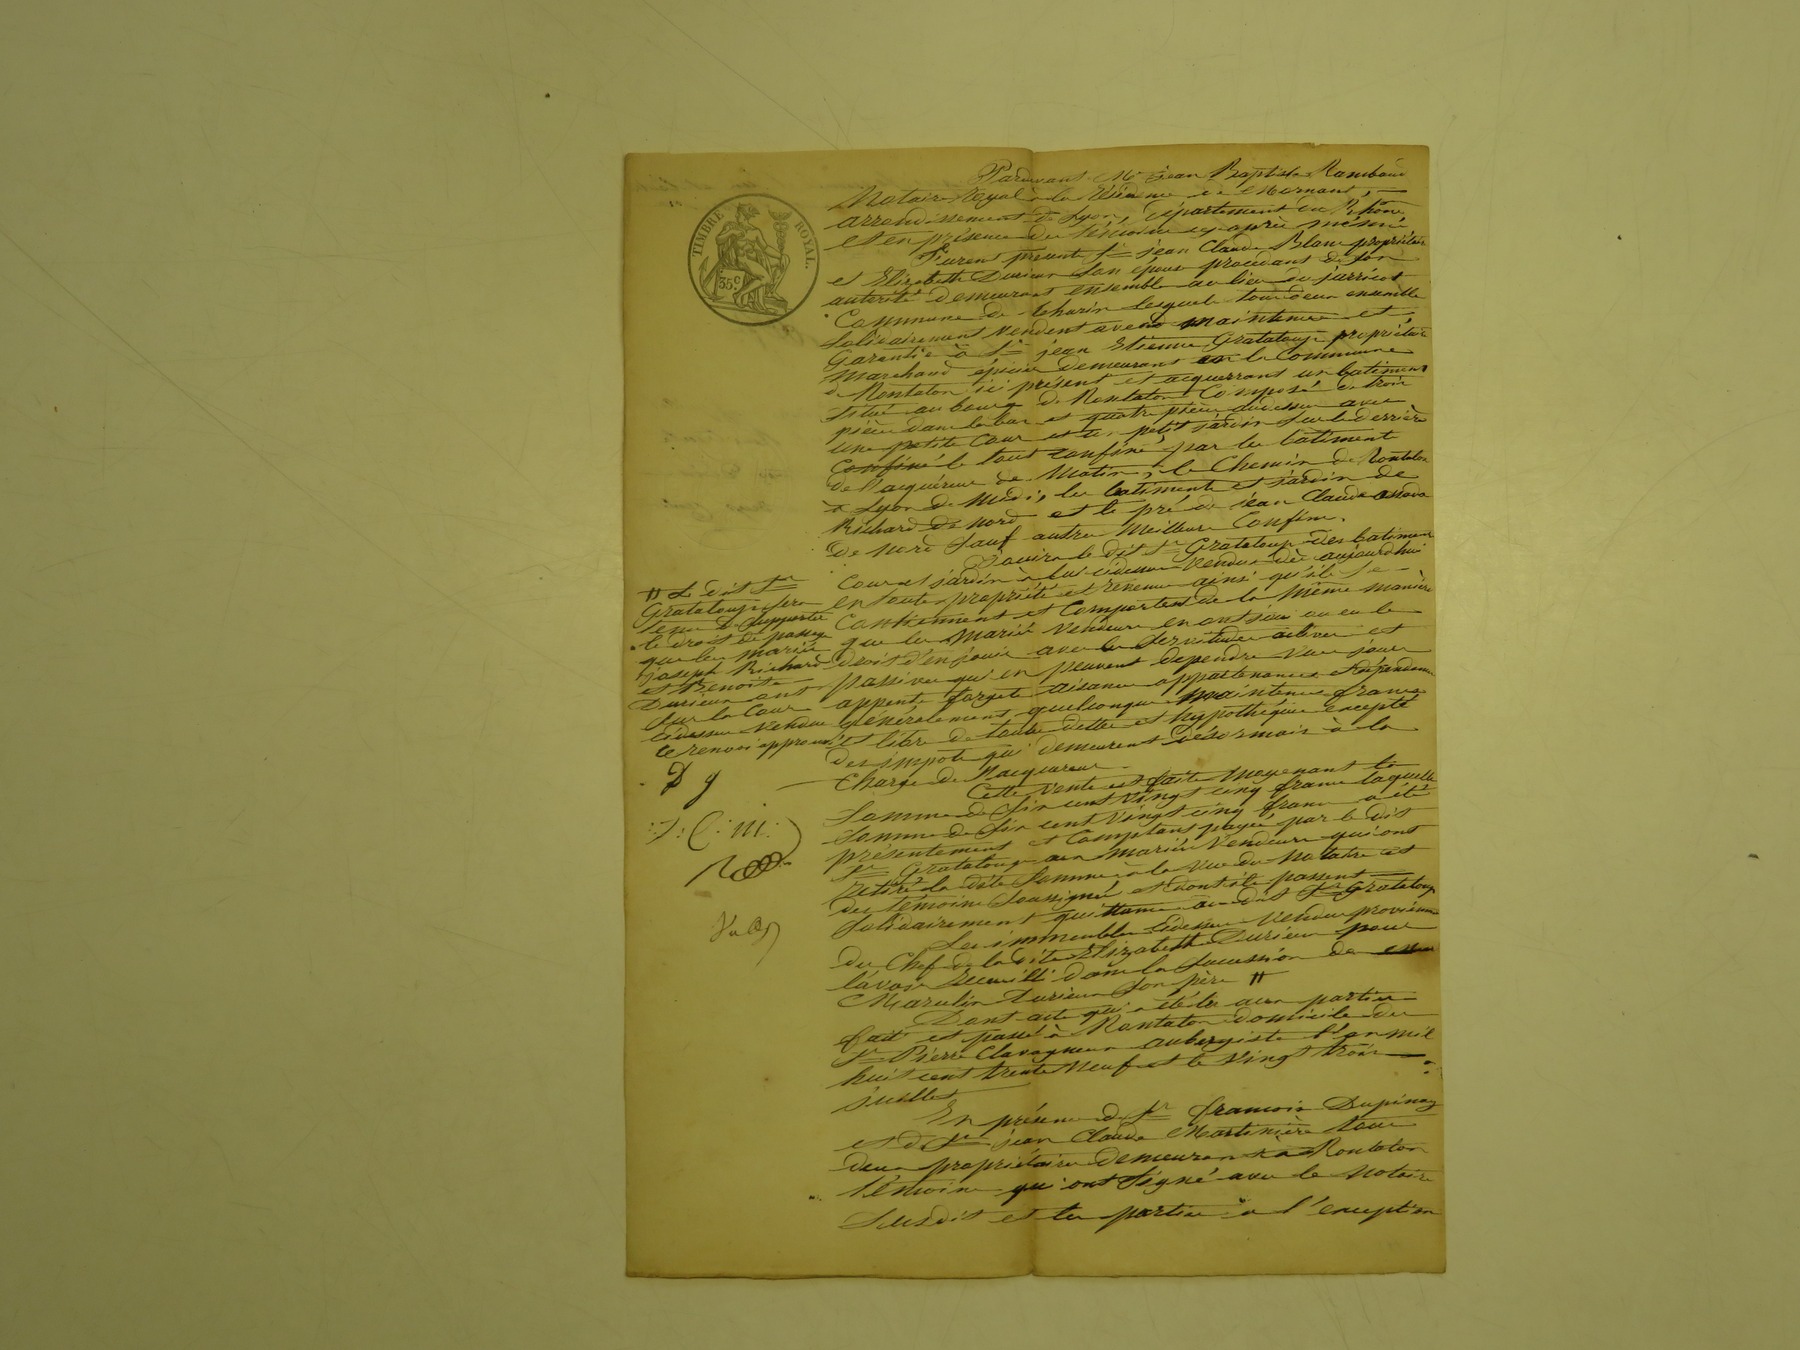 TIMBRE ROYAL.
35c
Pardevant Me Jean Baptiste Rambaud
Notaire Royal à la Résidence de Mornant,
arrondissement de Lyon, département du Rhône,
et en présence des témoins cyaprès
furent présents Sr jean Claude Blanc propriétaire
et Elizabeth Durieu son épouse procedant de son
autorité demeurant ensemble au lieu de
Commune de lesquels tous deux ensemble
solidairement vendent avec maintenue et
Garantie à Sr jean Etienne Grataloup propriétaire
Marchand épicier demeurant en la Commune
de Rontalon ici présent et acquerrant un batiment
situé au bourg de Rontalon Composé de trois
pièces dans le bas et quatre pièces audessus avec
une petite Cour et un petit jardin sur le derrière
Confiné le tout confiné par les batiment
de l'acquéreur de Matin, le Chemin de Rontalon
à Lyon de Midi, les batiments et jardin de
Richard de nord et le pré de jean Claude
de nord sauf autres Meilleurs Confins.
Jouira le dit Sr Grataloup des batiment
Cour et jardin à lui cidessus Vendus dès aujourd'hui
en toute propriété et revenus ainsi qu'ils se
Contiennent et Comportent de la même manière
que les Mariés Vendeurs en ont joui ou eu le
droit d'en jouir avec les servitudes actives et
passives qui en peuvent dependre vues jours
appents forgets aisances appartenances et dépendances
généralement quelconques maintenus francs
et libre de toute dettes et hypothèques excepté
des impots qui demeurent désormais à la
Charge de l'acquereur
Cette Vente est faite moyenant la
Somme de Six cent Vingt cinq francs laquelle
Somme de Six cent vingt cinq francs a été
présentement et Comptant payée par le dit
Sr Grataloup aux mariés Vendeurs qui ont
retiré la dite Somme à la vue du Notaire et
des témoins soussignés et dont ils passent
solidairement quittance au dit Sr Grataloup
Les immeubles cidessus Vendus proviennent
du Chef de la dite Elizabeth Durieu pour
l'avoir recueilli dans la succession de
Marcelin Durieu son père "
Dont acte qui a été lu aux parties
fait et passé à Rontalon domicile du
Sr Pierre Clavagneux aubergiste l'an mil
huit cent trente neuf et le vingt trois
juillet
En présence de Sr francois Dupinay
et de Sr jean Claude Martinière tous
deux propriétaires demeurant à Rontalon
témoins qui ont signé avec le Notaire
Susdit et les parties à l'exception
" Le dit Sr
Grataloup sera
tenu de supporter
le droit de passage
que les mariés
joseph Richard
et Benoite
Durieu ont
sur la Cour
cidessus Vendue
ce renvoi approuvé